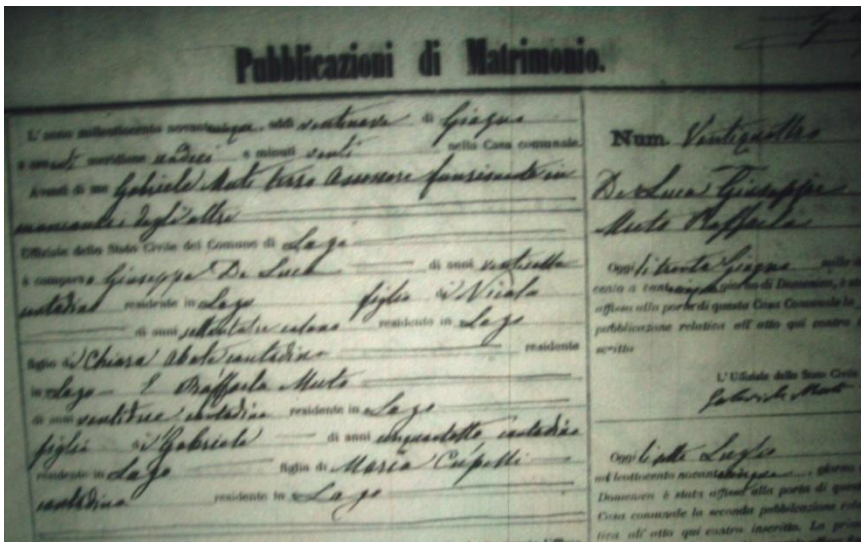 Pubblicazioni di Matrimonio.
L'anno milleottocento novantacinque, addì ventinove di Giugno
a ore meridiane undici e minuti venti nella Casa comunale.
Avanti di me Gabriele Muto terzo Assessore funzionante in
mancanza degli altri
Uffiziale dello Stato Civile del Comune di Lago
è comparso Giuseppe De Luca di anni ventisette
contadino residente in Lago figlio di Nicola
di anni settantatre colono residente in Lago
figlio di Chiara Abate contadina residente
in Lago E Raffaela Muto
di anni ventidue contadina residente in Lago
figlia di Gabriele di anni cinquantotto contadino
residente in Lago figlia di Maria Cupelli
contadina residente in Lago
Num. Ventiquattro
De Luca Giuseppe
Muto Raffaela
Oggi li trenta Giugno mille
cento a cinque giorno di Domenica, è
affissa alla porta di questa Casa Comunale la
pubblicazione relativa all'atto qui contro
scritto
L'Uffiziale dello Stato Civile
Gabriele Muto
Oggi li sette Luglio
milleottocento novantacinque, giorno
Domenica è stata affissa alla porta di questa
Casa comunale la seconda pubblicazione
tiva all'atto qui contro inscritto. La